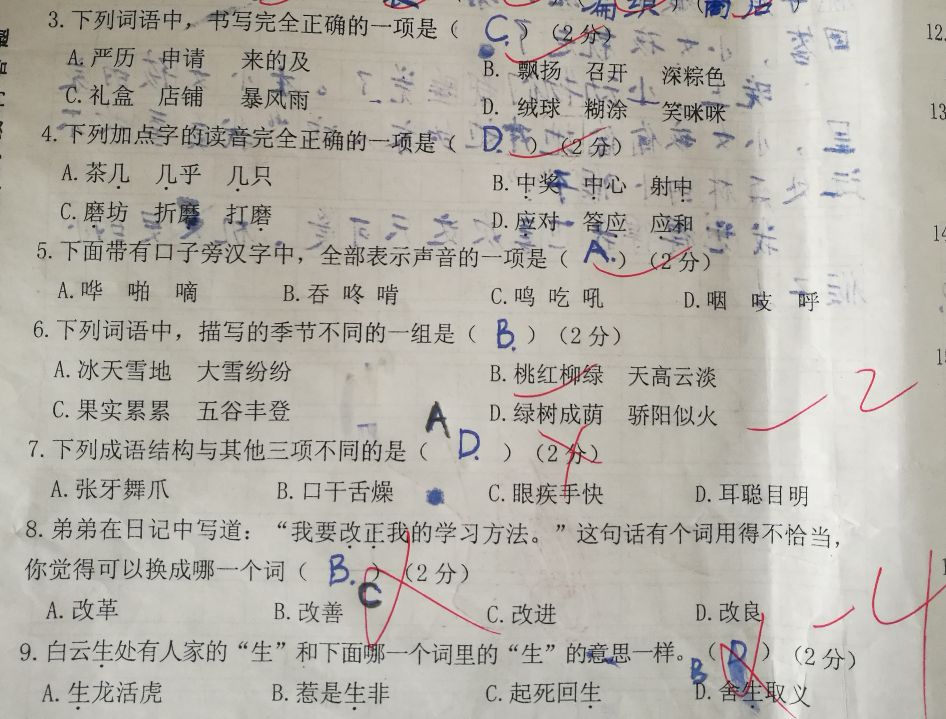 3.下列词语中，书写完全正确的一项是（ C. ）（2分）
A.严历 申请 来的及 B.飘扬 召开 深粽色
C.礼盒 店铺 暴风雨 D.绒球 糊涂 笑咪咪
4.下列加点字的读音完全正确的一项是（ D. ）（2分）
A.茶几 几乎 几只 B.中奖 中心 射中
C.磨坊 折磨 打磨 D.应对 答应 应和
5.下面带有口子旁汉字中，全部表示声音的一项是（ A. ）（2分）
A.哗 啪 嘀 B.吞 咚 啃 C.鸣 吃 吼 D.咽 吱 呼
6.下列词语中，描写的季节不同的一组是（ B. ）（2分）
A.冰天雪地 大雪纷纷 B.桃红柳绿 天高云淡
C.果实累累 五谷丰登 D.绿树成荫 骄阳似火
-2
A
7.下列成语结构与其他三项不同的是（ D. ）（2分）
A.张牙舞爪 B.口干舌燥 C.眼疾手快 D.耳聪目明
8.弟弟在日记中写道：“我要改正我的学习方法。”这句话有个词用得不恰当，
你觉得可以换成哪一个词（ B. ）（2分）
C
A.改革 B.改善 C.改进 D.改良
-4
9.白云生处有人家的“生”和下面哪一个词里的“生”的意思一样。（ D ）（2分）
B
A.生龙活虎 B.惹是生非 C.起死回生 D.舍生取义
12.
13
14